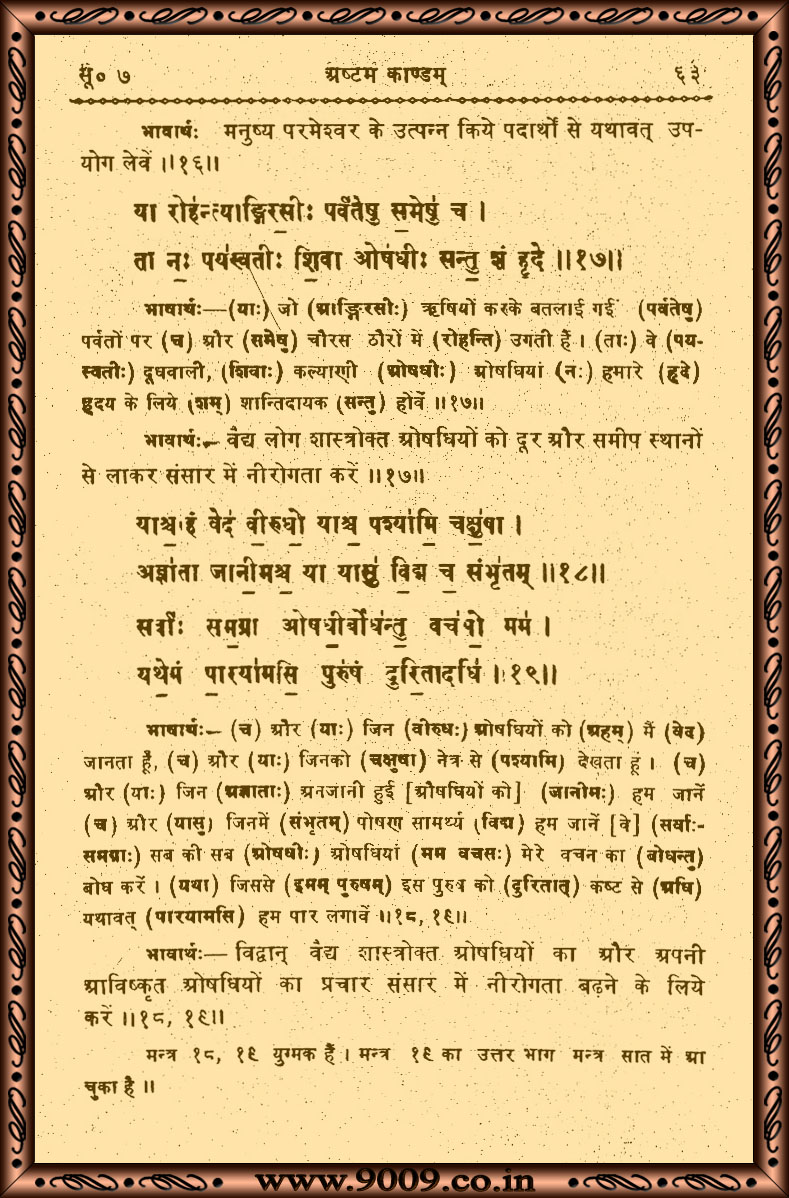 सू० ७ अष्टम काण्डम् ६३
भावार्थः मनुष्य परमेश्वर के उत्पन्न किये पदार्थों से यथावत् उप-
योग लेवें ॥१६॥
या रोह॑न्त्याङ्गिर॒सीः पर्व॑तेषु स॒मेषु॑ च ।
ता नः॒ पय॑स्वतीः शि॒वा ओष॑धीः सन्तु॒ शं हृ॒दे ॥१७॥
भाषार्थः—(याः) जो (आङ्गिरसीः) ऋषियों करके बतलाई गईं (पर्वतेषु)
पर्वतों पर (च) और (समेषु) चौरस ठौरों में (रोहन्ति) उगती हैं । (ताः) वे (पय-
स्वतीः) दूधवाली, (शिवाः) कल्याणी (ओषधीः) ओषधियां (नः) हमारे (हृदे)
हृदय के लिये (शम्) शान्तिदायक (सन्तु) होवें ॥१७॥
भावार्थः— वैद्य लोग शास्त्रोक्त ओषधियों को दूर और समीप स्थानों
से लाकर संसार में नीरोगता करें ॥१७॥
याश्चा॒हं वेद॑ वी॒रुधो॒ याश्च॒ पश्या॑मि॒ चक्षु॑षा ।
अज्ञा॑ता जानी॒मश्च॒ या यासु॑ वि॒द्म च॒ संभृ॑तम् ॥१८॥
सर्वाः॑ सम॒ग्रा ओष॑धी॒र्बोध॑न्तु॒ वच॑सो॒ मम॑ ।
यथे॒मं पा॒रया॑मसि॒ पुरु॑षं दुरि॒तादधि॑ ॥१९॥
भाषार्थः— (च) और (याः) जिन (वीरुधः) ओषधियों को (अहम्) मैं (वेद)
जानता हूँ, (च) और (याः) जिनको (चक्षुषा) नेत्र से (पश्यामि) देखता हूं । (च)
और (याः) जिन (अज्ञाताः) अनजानी हुई [औषधियों को] (जानीमः) हम जानें
(च) और (यासु) जिनमें (संभृतम्) पोषण सामर्थ्य (विद्म) हम जानें [वे] (सर्वाः-
समग्राः) सब की सब (ओषधीः) ओषधियां (मम वचसः) मेरे वचन का (बोधन्तु)
बोध करें । (यथा) जिससे (इमम् पुरुषम्) इस पुरुष को (दुरितात्) कष्ट से (अधि)
यथावत् (पारयामसि) हम पार लगावें ॥१८, १९॥
भावार्थः— विद्वान् वैद्य शास्त्रोक्त ओषधियों का और अपनी
आविष्कृत ओषधियों का प्रचार संसार में नीरोगता बढ़ने के लिये
करें ॥१८, १९॥
मन्त्र १८, १९ युग्मक हैं । मन्त्र १९ का उत्तर भाग मन्त्र सात में आ
चुका है ॥
www.9009.co.in